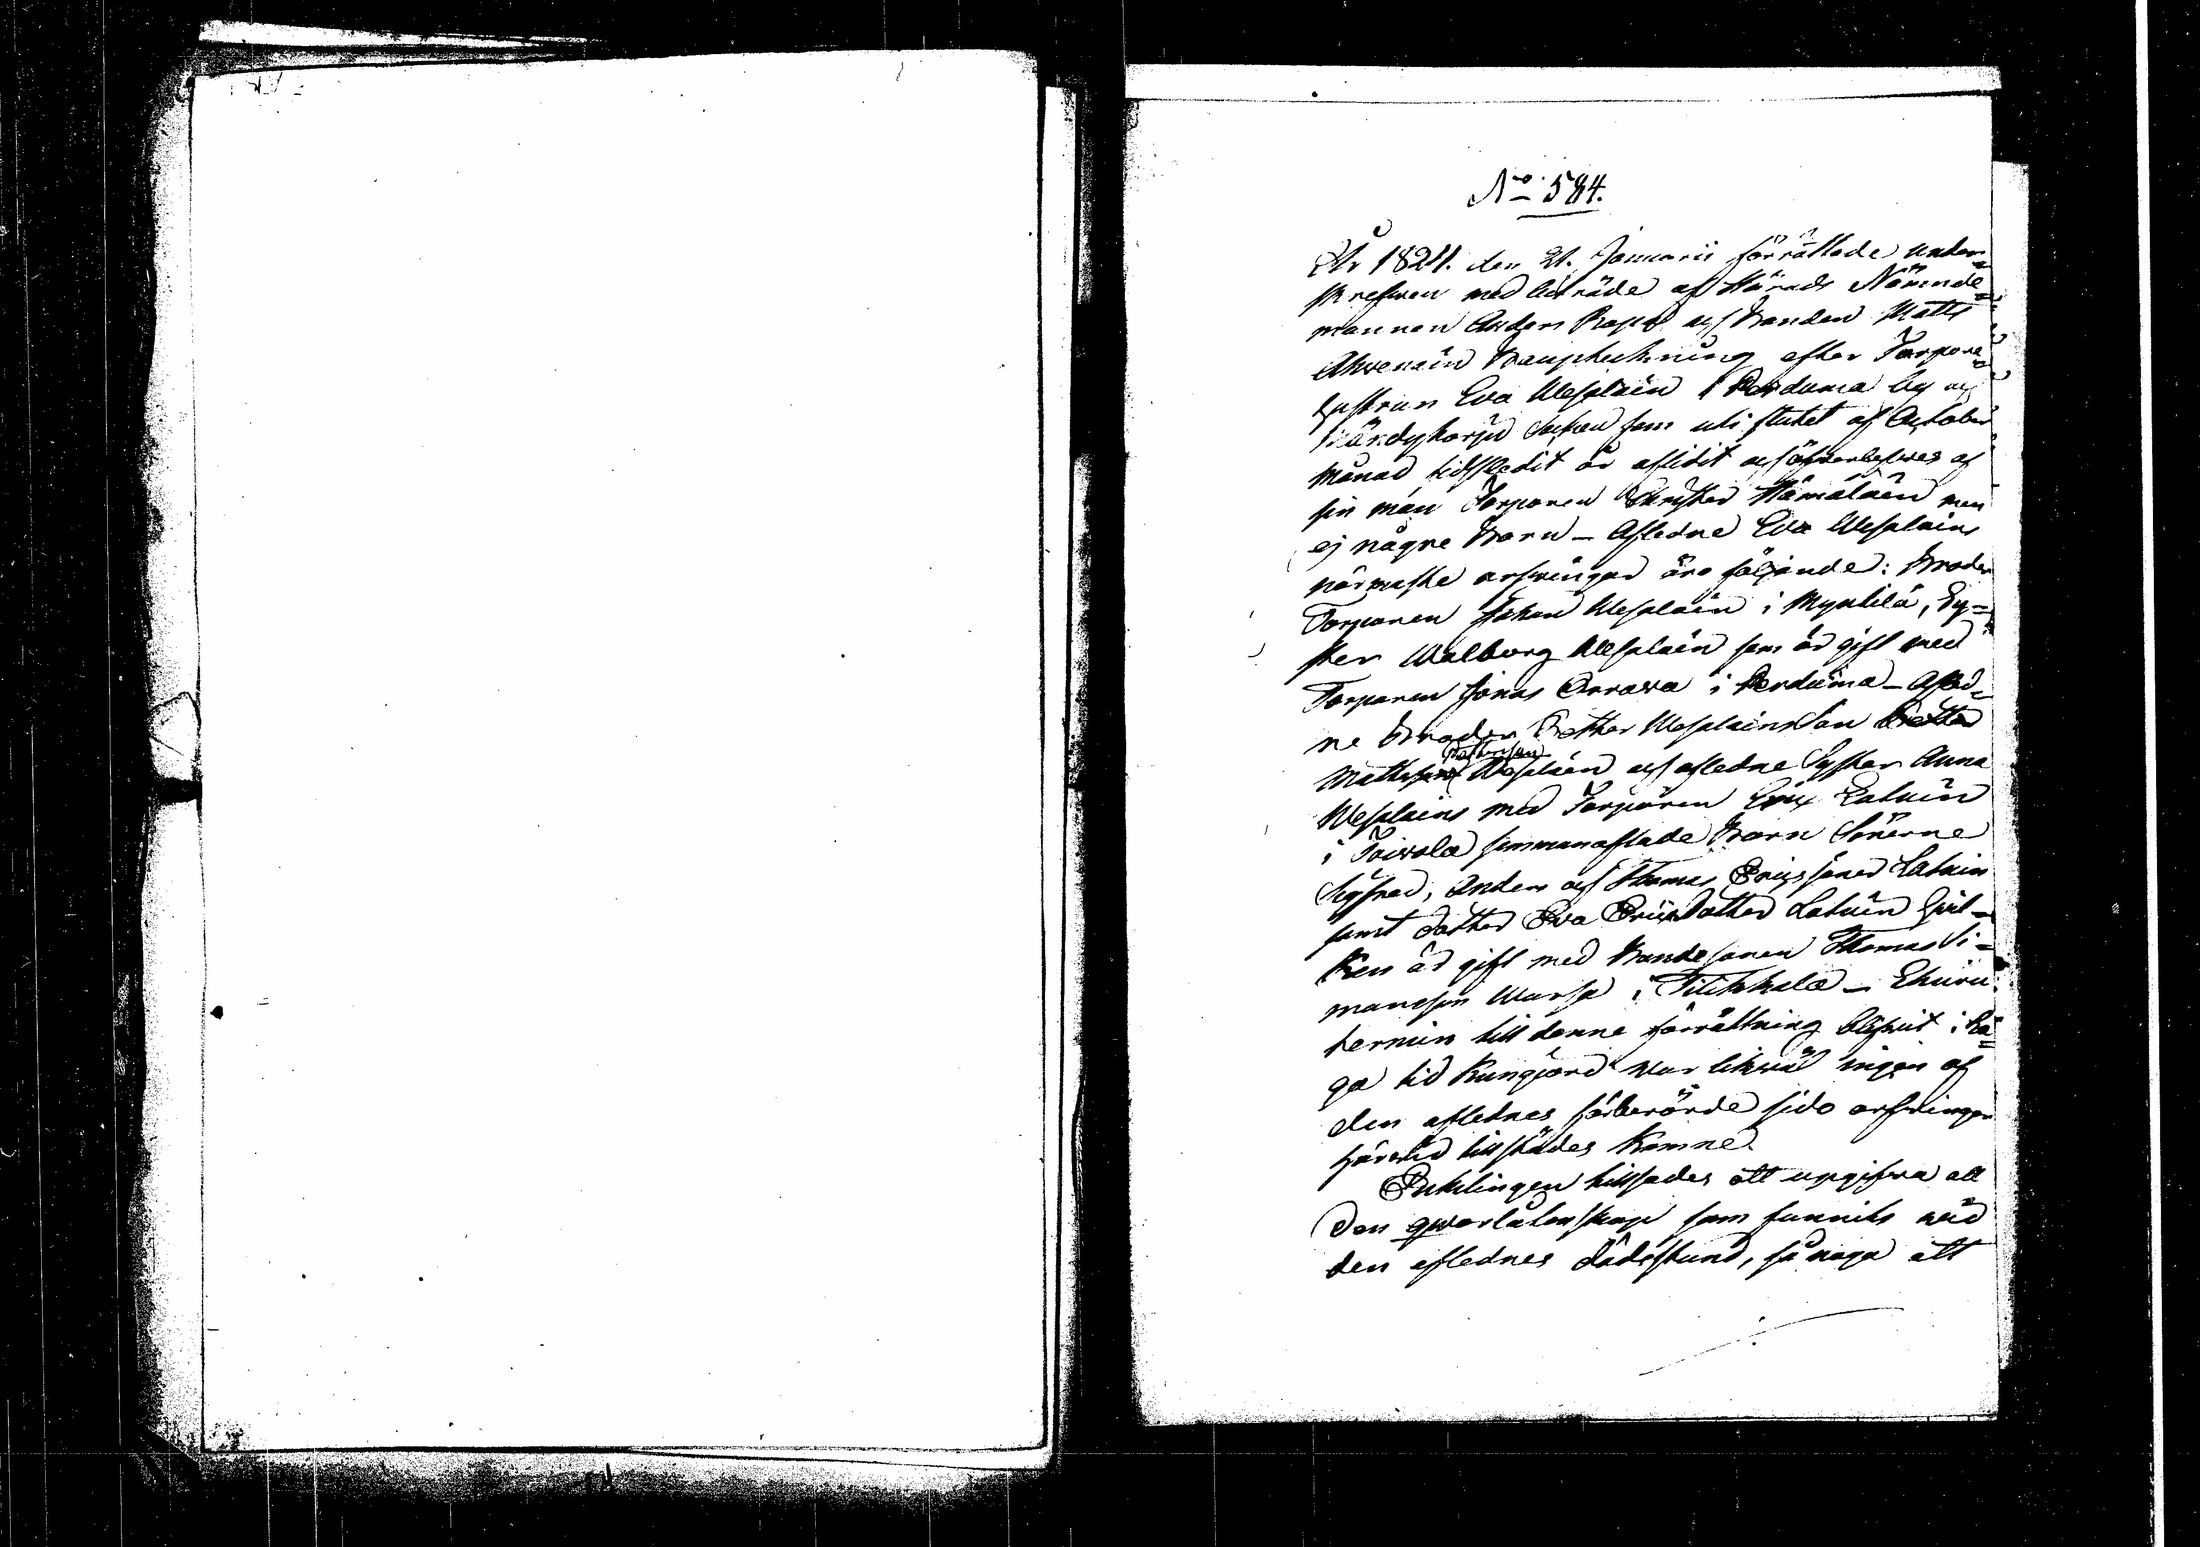 No 584.
År 1824. den 21. Januarii förrättade under=
skrefven med biträde af Härads Nämnde=
mannen Anders och Bonden Matts
Ahvenain Bouptekning efter Torpare
hustrun Eva Vesalain i Porduma by och
Kändykorpi Socken som uti slutet af October
månad tidtledit år aflidit och öfverlefves af
sin man Torparen Christer Hämäläin men
ej någre Barn – Afledne Eva Vesalains
närmaste arfvingar äro följande: Broder
Torparen Johan Vesalain i Myntilä, Sy=
ster Walborg Vesalain som är gift med
Torparen Jonas Orrava i Porduma – Afled=
ne Broder Petter Vesalains Son Petter
Mattsson Pettersson Vesalain och afledne Syster Anna
Vesalains med Torparen Erix Latuin
i Toivola sammanaflade Barn Sönerne
Sigfred, Anders och Thomas Erixsöner Latuin
samt dotter Eva Erixdotter Latuin hvil=
ken är gift med Bondesonen Thomas Si=
monsson i Tilikkala – Ehuru
termin till denne förrättning blifvit i lå=
ga tid kungjord var likväl ingen af
den aflednes förberörde sido arfvingar
härvid tillstädes komne.
Enklingen tillsades att uppgifva all
den qvarlåtenskap som funnits vid
den aflednes dödsstund, så noga att